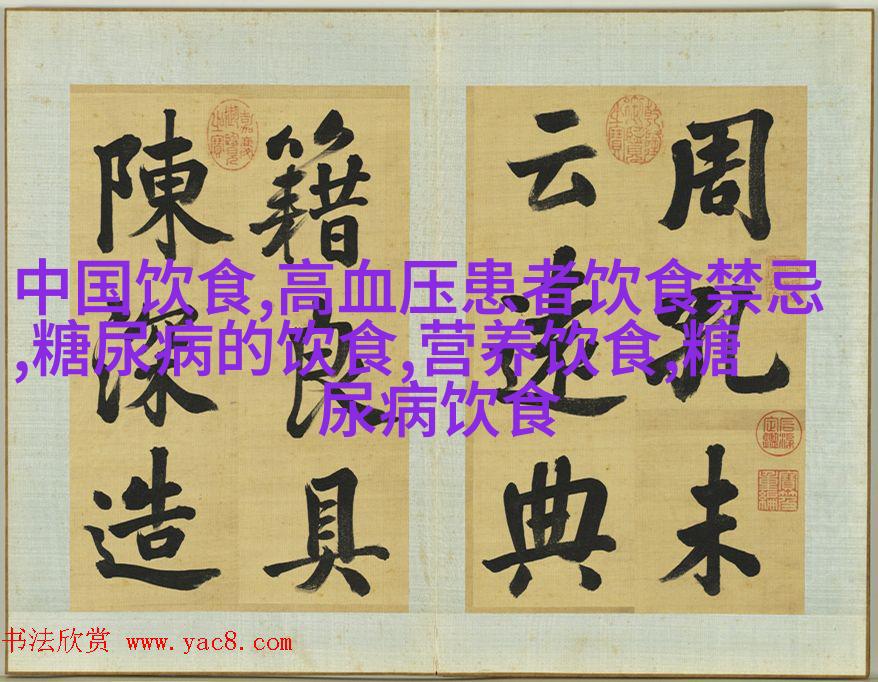 周孔未
云遠典
籍良具
陳深造
中国饮食,高血压患者饮食禁忌
,糖尿病的饮食,营养饮食,糖
尿病饮食
书法欣赏 www.yac8.com